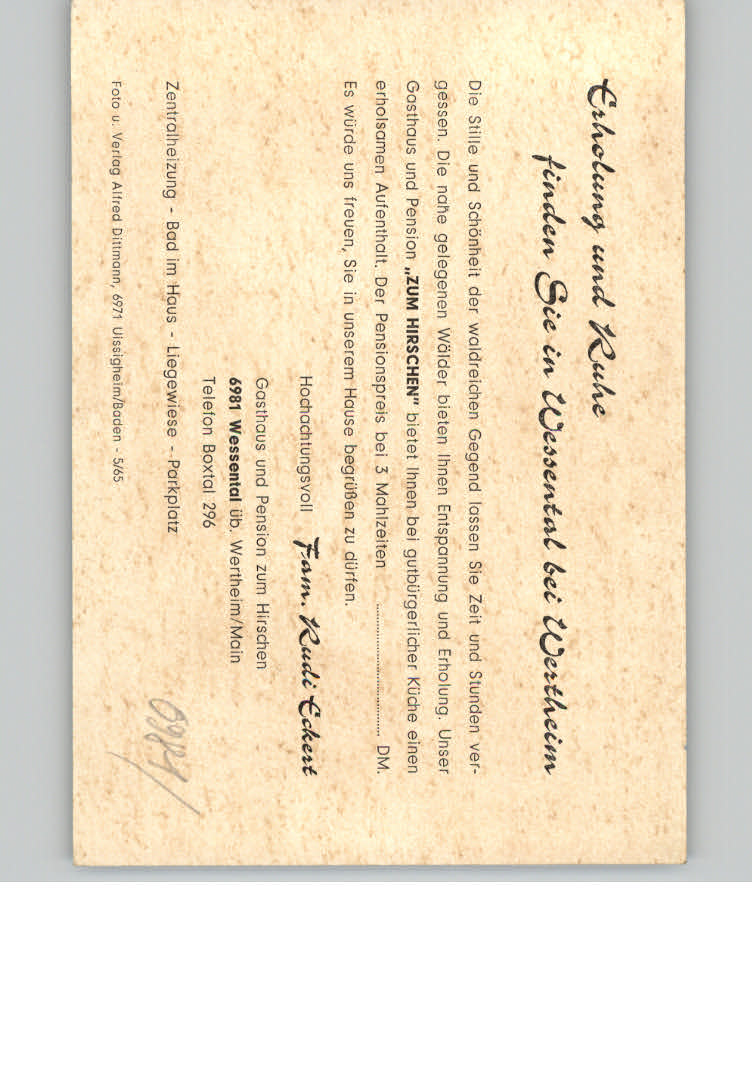 Erholung und Ruhe
finden Sie in Wessental bei Wertheim
Die Stille und Schönheit der waldreichen Gegend lassen Sie Zeit und Stunden ver-
gessen. Die nahe gelegenen Wälder bieten Ihnen Entspannung und Erholung. Unser
Gasthaus und Pension „ZUM HIRSCHEN" bietet Ihnen bei gutbürgerlicher Küche einen
erholsamen Aufenthalt. Der Pensionspreis bei 3 Mahlzeiten .............................. DM.
Es würde uns freuen, Sie in unserem Hause begrüßen zu dürfen.
Hochachtungsvoll Fam. Rudi Eckert
Gasthaus und Pension zum Hirschen
6981 Wessental üb. Wertheim/Main
Telefon Boxtal 296
Zentralheizung - Bad im Haus - Liegewiese - Parkplatz
Foto u. Verlag Alfred Dittmann, 6971 Uissigheim/Baden - 5/65